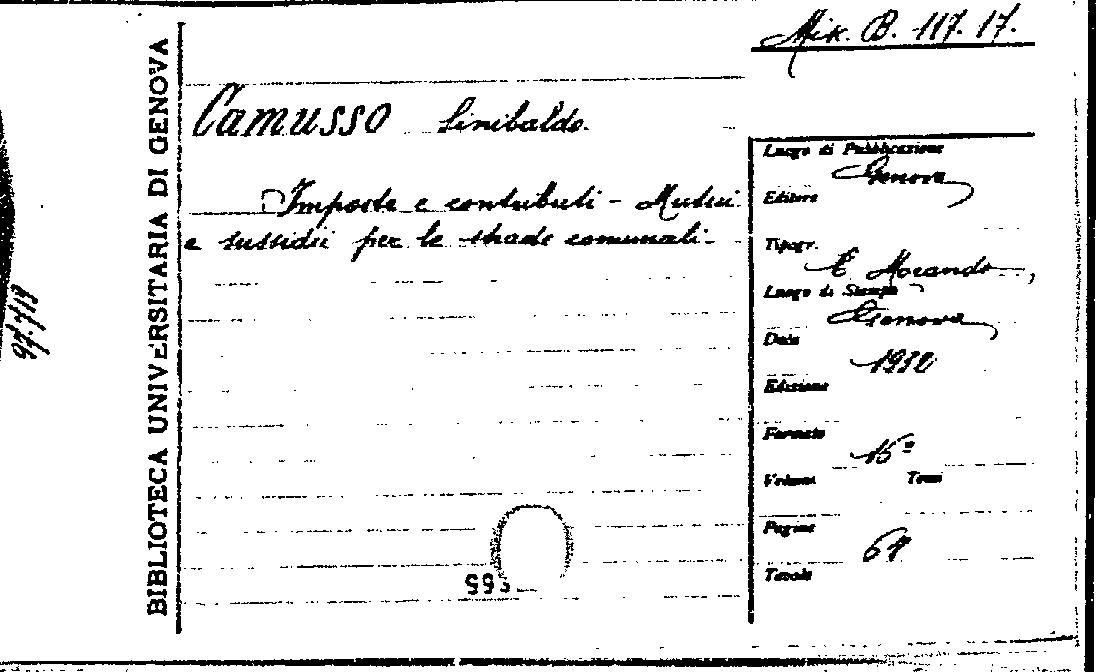 Mik. B. 117. 17.
BIBLIOTECA UNIVERSITARIA DI GENOVA
Camusso Sinibaldo.
Imposte e contributi - Mutui
e sussidii per le strade comunali.
Luogo di Pubblicazione
Genova
Editore
Tipogr.
E. Morando,
Luogo di Stampa
Genova
Data
1932
Edizione
Formato
15º
Volume Tomi
Pagine
64
Tavole